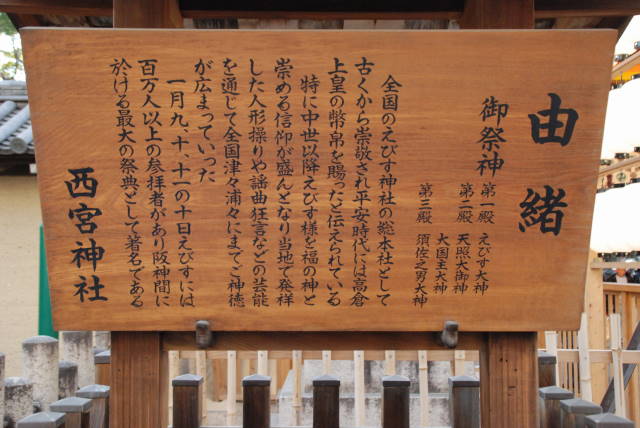 由緒
御祭神
第一殿 えびす大神
第二殿 天照大御神
大国主大神
第三殿 須佐之男大神
全国のえびす神社の総本社として
古くから崇敬され平安時代には高倉
上皇の幣帛を賜ったと伝えられている
特に中世以降えびす様を福の神と
崇める信仰が盛んとなり当地で発祥
した人形操りや謡曲狂言などの芸能
を通じて全国津々浦々にまでご神徳
が広まっていった
一月九、十、十一の十日えびすには
百万人以上の参拝者があり阪神間に
於ける最大の祭典として著名である
西宮神社